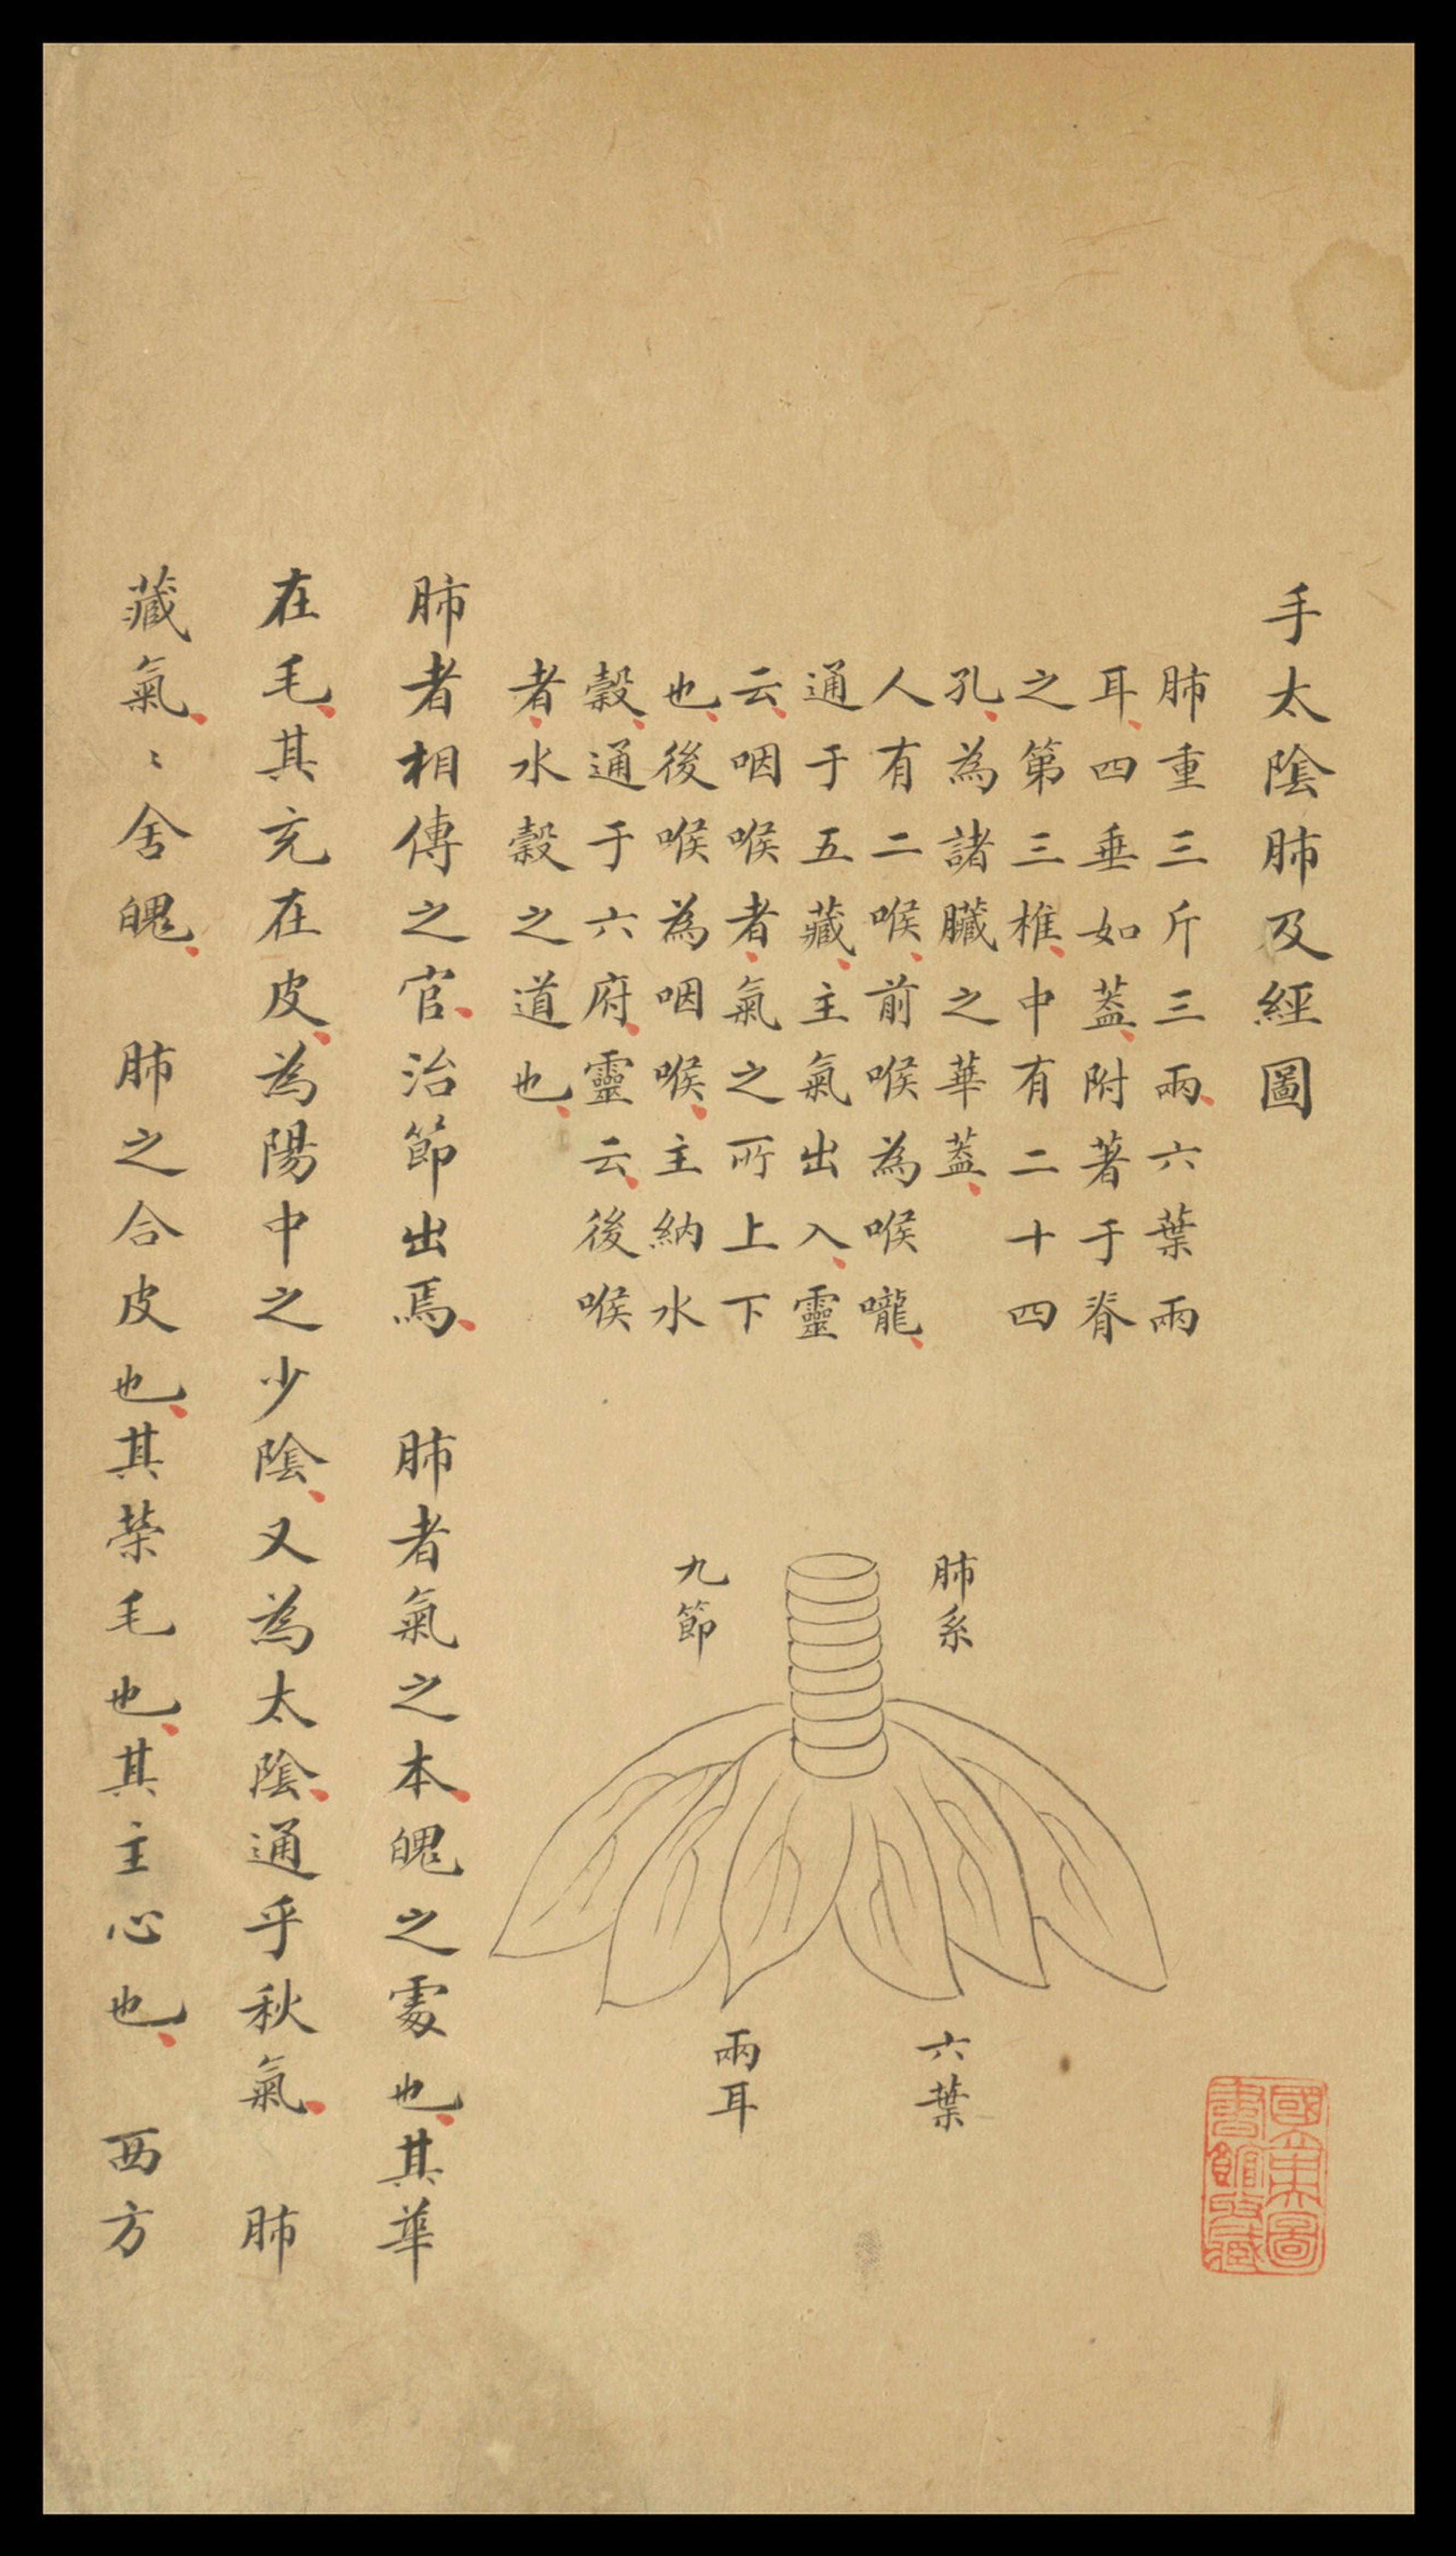 手太陰肺及經圖
肺重三斤三兩六葉兩
耳四垂如蓋附著于脊
之第三椎中有二十四
孔為諸臓之華蓋
人有二喉前喉為喉嚨
通于五藏主氣出入靈
云咽喉者氣之所上下
也後喉為咽喉主納水
穀通于六府靈云後喉
者水穀之道也
肺系
九節
六葉
兩耳
肺者相傳之官治節出焉　肺者氣之本魄之處也其華
在毛其充在皮為陽中之少陰又為太陰通乎秋氣　肺
藏氣〻舍魄　肺之合皮也其榮毛也其主心也　西方
國東圖
書館收藏